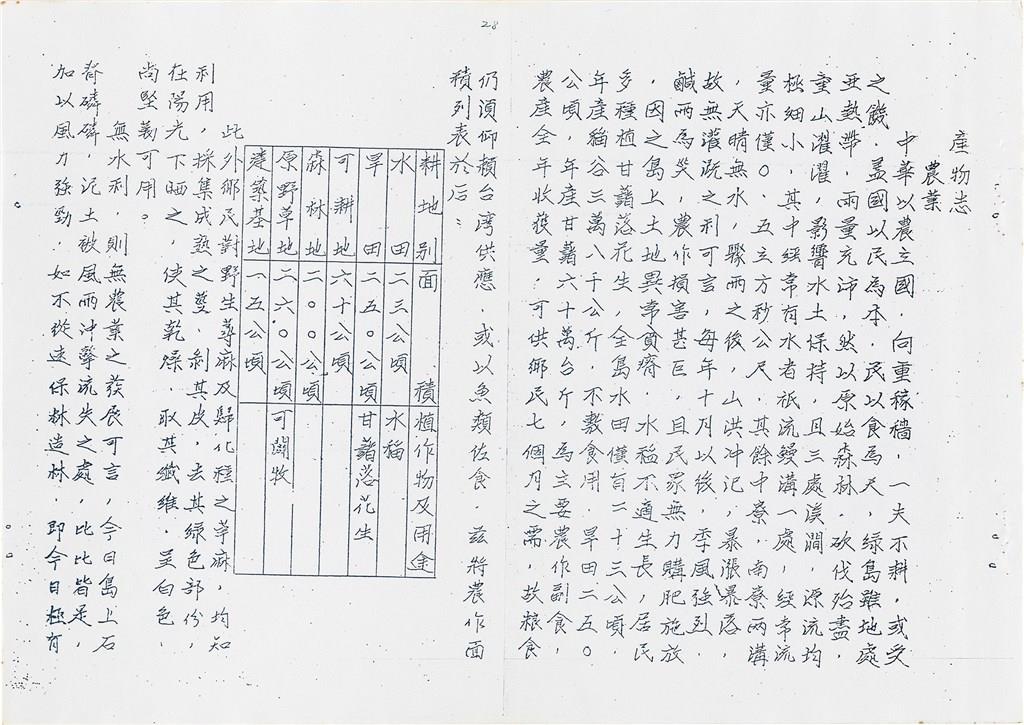 28
產物志
農業
中華以農立國﹒向重稼穡﹒一夫不耕，或受
之饑﹒蓋國以民為本﹒民以食為天，綠島雖地處
亚熱帶﹒雨量充沛，然以原始森林﹒砍伐殆盡，
童山濯濯，影響水土保持，且三處溪澗﹒源流均
極細小，其中經常有水者祇流鰻溝一處，經常流
量亦僅0﹒五立方秒公尺﹒其餘中寮﹒南寮兩溝
，天晴無水，驟雨之後，山洪冲汜，暴漲暴落，
故無灌溉之利可言，每年十月以後，季風強烈﹒
鹹雨為災，農作損害甚巨，且民眾無力購肥施放
，因之島上土地異常貧瘠﹒水稻不適生長，居民
多種植甘藷落花生，全島水田僅有二十三公頃，
年產稻谷三萬八千公斤，不敷食用﹒旱田二五0
公頃，年產甘藷六十萬台斤，為主要農作副食，
農產全年收获量﹒可供鄉民七個月之需，故粮食
仍須仰賴台湾供應﹒或以魚類佐食﹒茲將農作面
積列表於后：
耕地别 面積 植作物及用途
水田 二三公頃 水稻
旱田 二五0公頃 甘藷落花生
可耕地 六十公頃
森林地 二00公頃
原野草地 二六0公頃 可闢牧
建築基地 一五公頃
此外鄉民對野生蕁麻及歸化種之苧麻，均知
利用，採集成熟之莖﹒剝其皮，去其綠色部份，
在陽光下晒之，使其乾燥﹒取其纖維﹒呈白色﹒
尚堅義可用。
無水利，則無農業之发展可言，今日島上石
脊磷磷，汜土被風雨冲擊流失之處，比比皆是，
加以風力強勁﹒如不從速保林造林﹒即今日極有